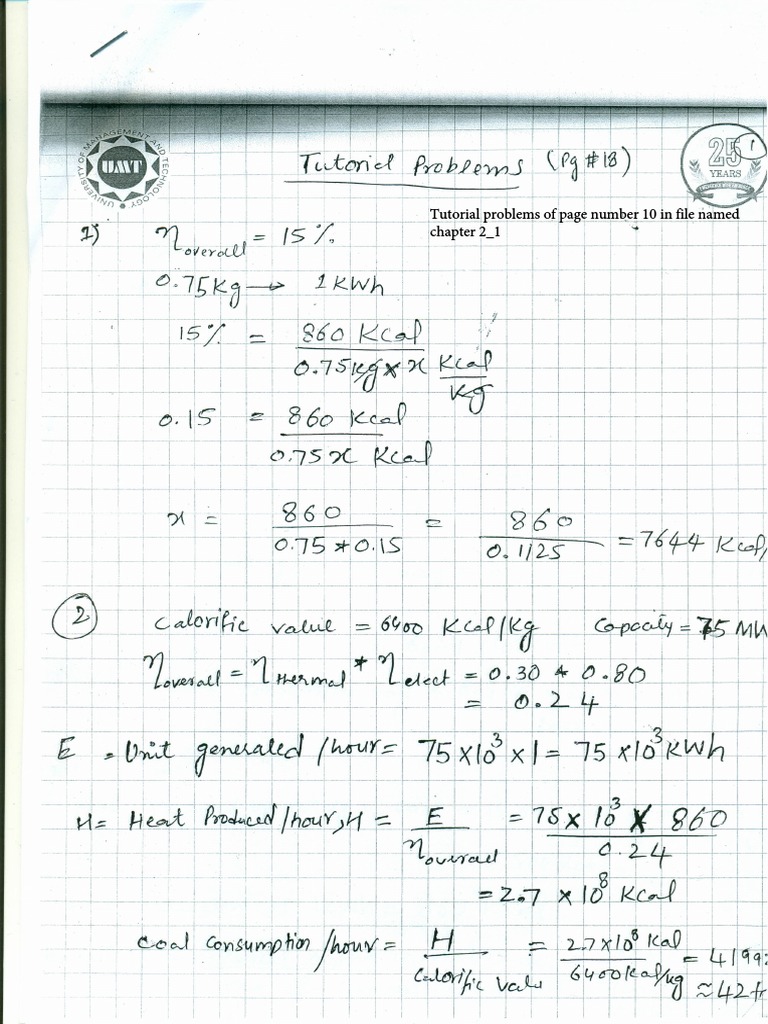 UNIVERSITY OF MANAGEMENT AND TECHNOLOGY
UMT
Tutorial Problems (Pg # 18)
25
YEARS
1
Tutorial problems of page number 10 in file named
chapter 2_1
1) η overall = 15 %
0.75 Kg → 1 KWh
15% = 860 Kcal / 0.75 Kg × x Kcal/Kg
0.15 = 860 Kcal / 0.75x Kcal
x = 860 / 0.75 * 0.15 = 860 / 0.1125 = 7644 Kcal/
2 Calorific value = 6400 Kcal/Kg Capacity = 75 MW
η overall = η thermal * η elect = 0.30 * 0.80
= 0.24
E = Unit generated /hour = 75 × 10³ × 1 = 75 × 10³ KWh
H = Heat Produced /hour, H = E / η overall = 75 × 10³ × 860 / 0.24
= 2.7 × 10⁸ Kcal
Coal Consumption /hour = H / Calorific Valu = 2.7 × 10⁸ Kal / 6400 Kcal/kg = 4199
≈ 42 t